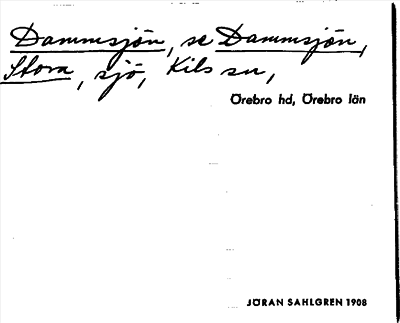 Dammsjön, se Dammsjön,
Stora, sjö, Kils sn,
Örebro hd, Örebro län
JÖRAN SAHLGREN 1908